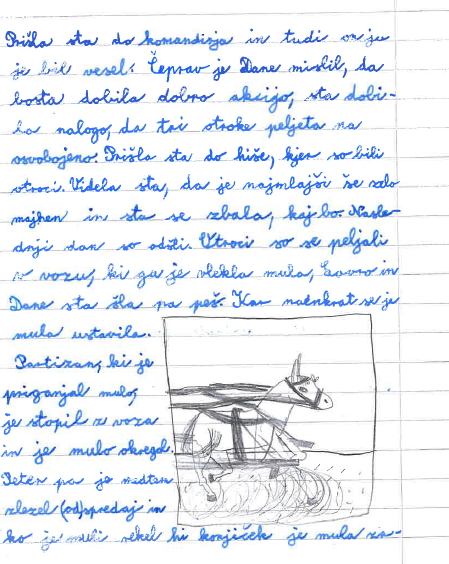 Prišla sta do komandirja in tudi on ju
je bil vesel. Čeprav je Dane mislil, da
bosta dobila dobro akcijo, sta dobi-
la nalogo, da tri otroke peljeta na
osvobojeno. Prišla sta do hiše, kjer so bili
otroci. Videla sta, da je najmlajši še zelo
majhen in sta se zbala, kaj bo. Nasle-
dnji dan so odšli. Otroci so se peljali
v vozu, ki ga je vlekla mula, Lovro in
Dane sta šla pa peš. Kar naenkrat se je
mula ustavila.
Partizan, ki je
priganjal mulo,
je stopil z voza
in je mulo okregal.
Peter pa je medtem
zlezel (od)spredaj in
ko je muli rekel hi konjiček je mula za-